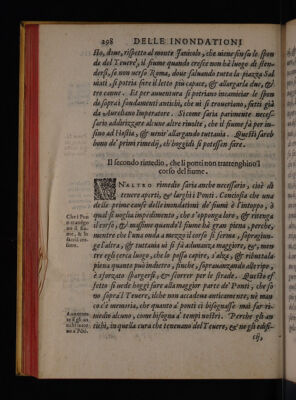 298 DELLE INONDATIONI
sto, doue, rispetto al monte Janicolo, che viene sin su le spon
de del Teuere, il fiume quando cresce non hà luogo di sten-
dersi, se non verso Roma, doue saluando tutta la piazza Sal
uiati, si potria fare il letto più capace, & allargarla due, &
tre canne. Et per auuentura si potriano incaminar le spon
de sopra i fondamenti antichi, che ui si troueriano, fatti già
da Aureliano Imperatore. Si come saria parimente neces-
sario addirizzare alcune altre riuolte, che il fiume fà per in-
sino ad Hostia, & uenir allargando tuttauia. Questi sareb
bono de' primi rimedij, ch'hoggidi si potessin fare.
Il secondo rimedio, che li ponti non trattenghino'l
corso del fiume.
Che i Pon
ti trattēgo
no il fiu-
me, & lo
facciā cre-
scere.
VN'ALTRO rimedio saria anche necessario, cioè di
tenere aperti, & larghi i Ponti. Conciosia che una
delle prime cause dell'inondationi de' fiumi è l'intoppo, ò
qual si voglia impedimento, che s'opponga loro, & ritenga
il corso, & massime quando'l fiume hà gran piena, perche,
mentre che una onda à mezzo il corso si ferma, sopragiun-
ge l'altra, & tuttauia ui si fà adunanza maggiore, &, men-
tre egli cerca luogo, che lo possa capire, s'alza, & ributta la
piena quanto può indietro, finche, sopranauanzando alle ripe,
è sforzato spargersi, & scorrer per le strade. Questo ef-
fetto si uede hoggi fare alla maggior parte de' Ponti, che so
no sopra'l Teuere, il che non accadeua anticamente, nè man
co c'è memoria, che quanto à' ponti ci bisognasse mai far ri-
Auuertenze
de gli an
tichi intor
no a' Pōti.
medio alcuno, come bisogna à' tempi nostri. Perche gli an
tichi, in quella cura che teneuano del Teuere, & ne gli edifi-
tij,